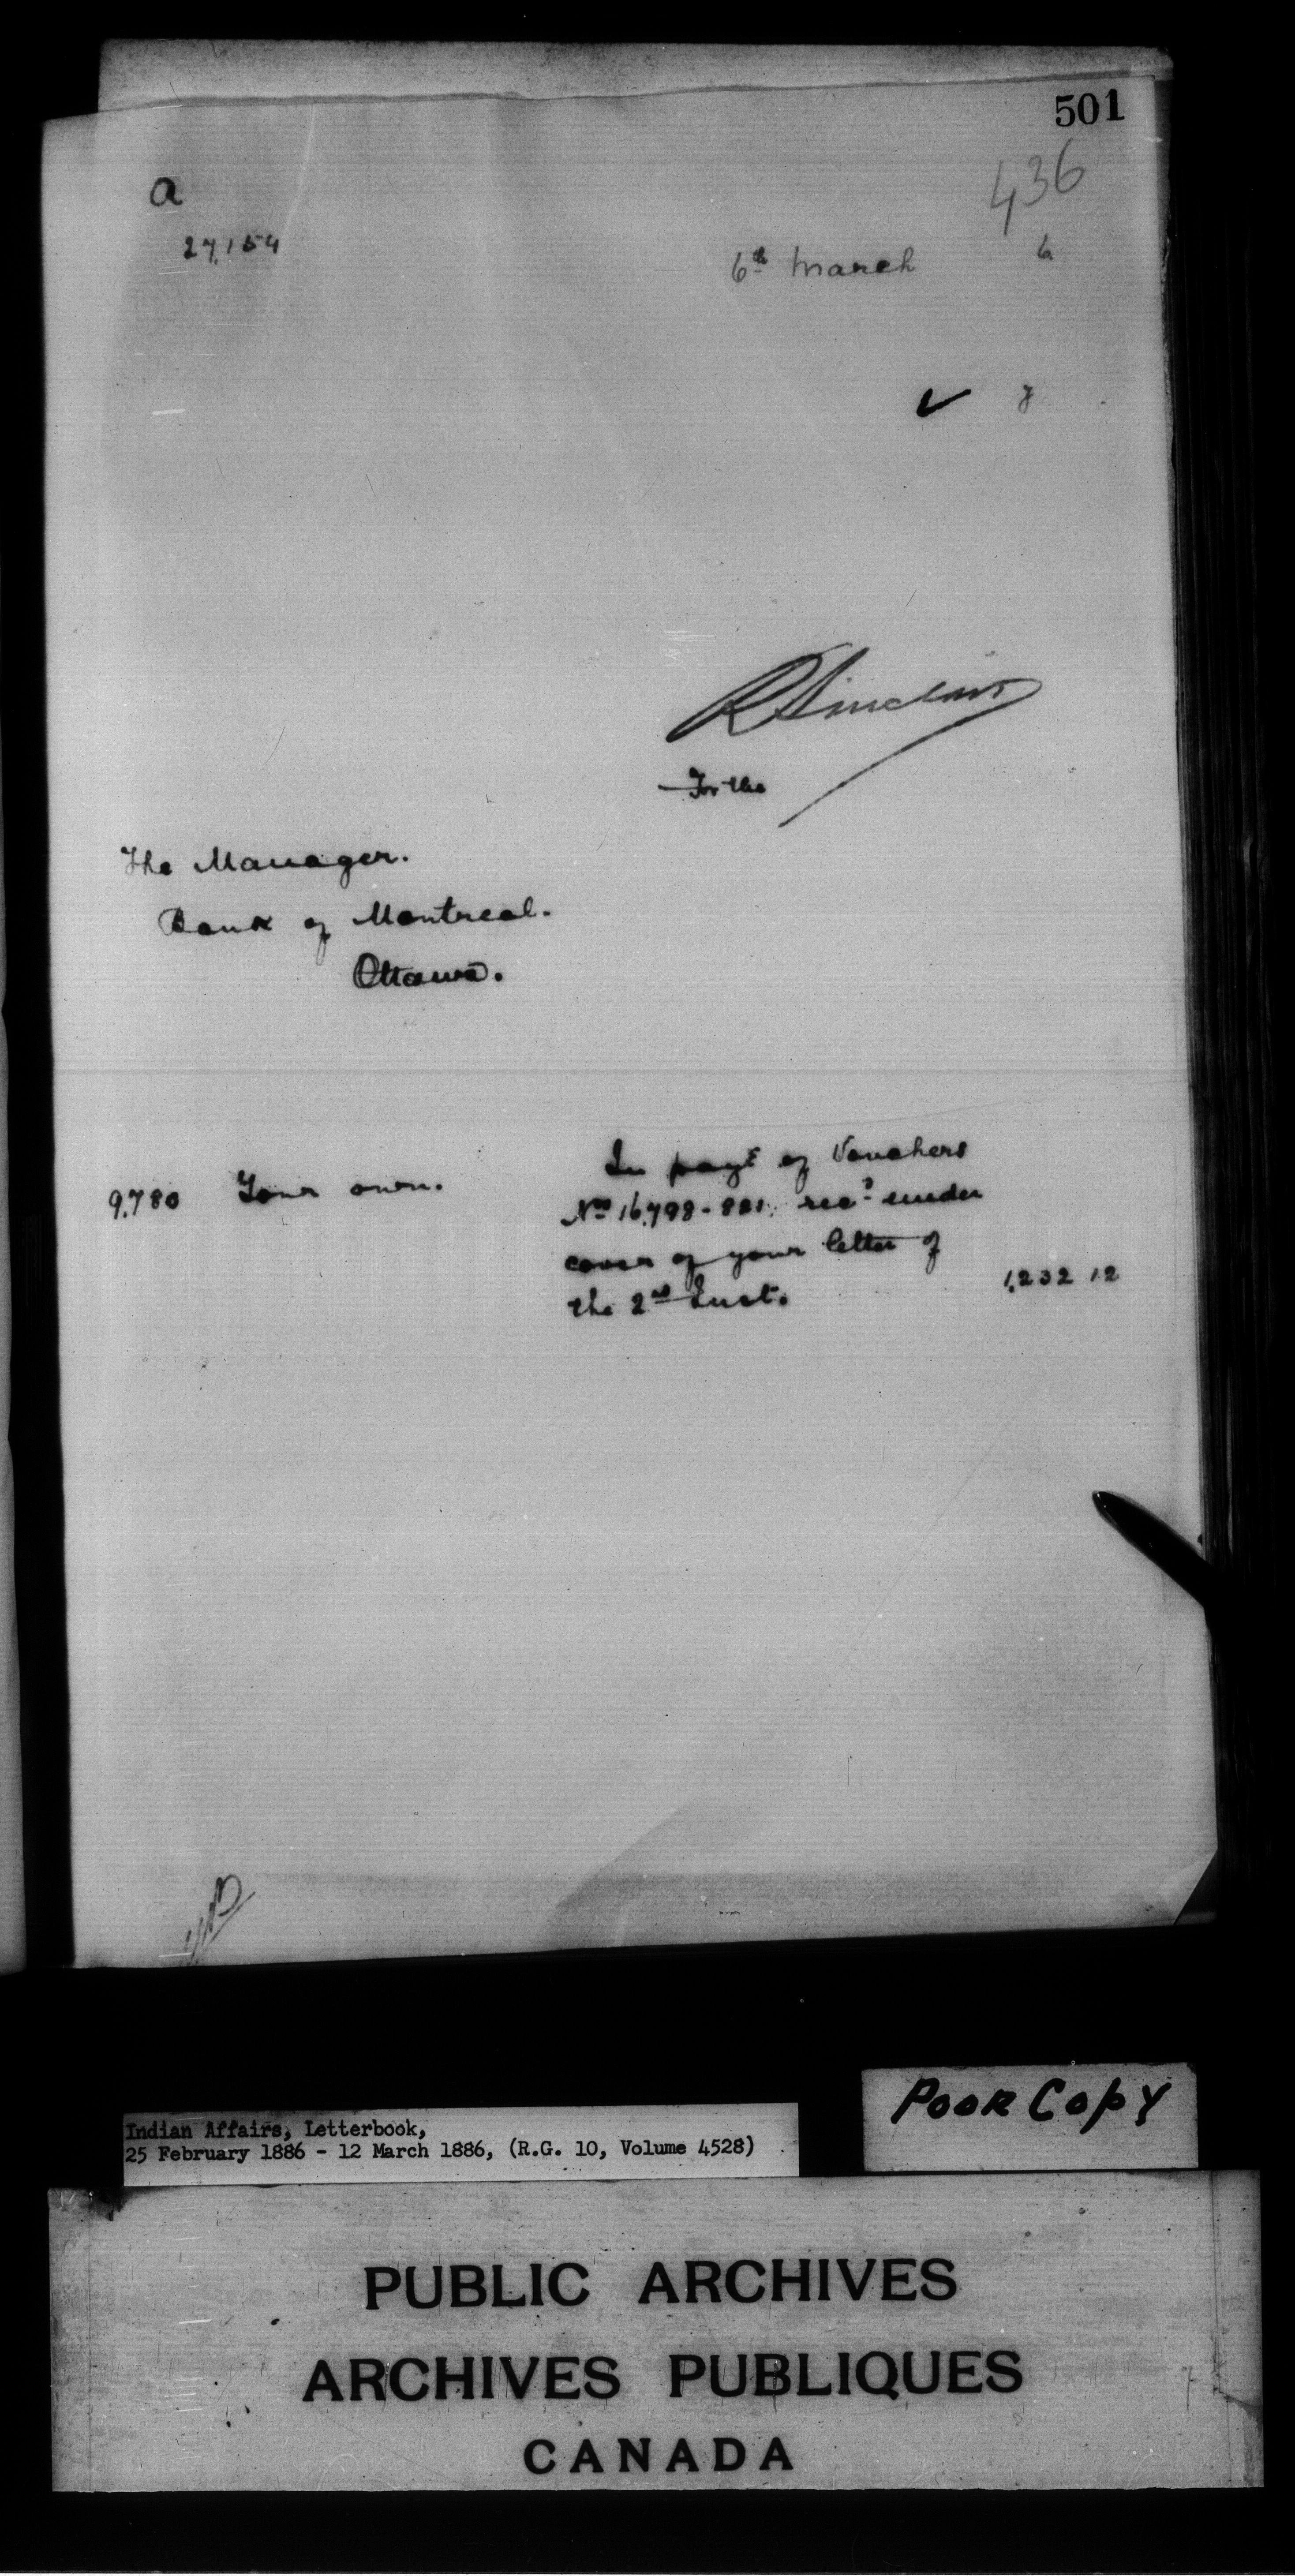 501
436
a
27,154
6th March 6
✓ 8
R Sinclair
For the
The Manager.
Bank of Montreal.
Ottawa.
In payt of Vouchers
9,780 Your own. Nos 16,798-821. recd under
cover of your letter of
the 2nd Inst. 1,232 12
Indian Affairs, Letterbook,
25 February 1886 - 12 March 1886, (R.G. 10, Volume 4528)
Poor Copy
PUBLIC ARCHIVES
ARCHIVES PUBLIQUES
CANADA